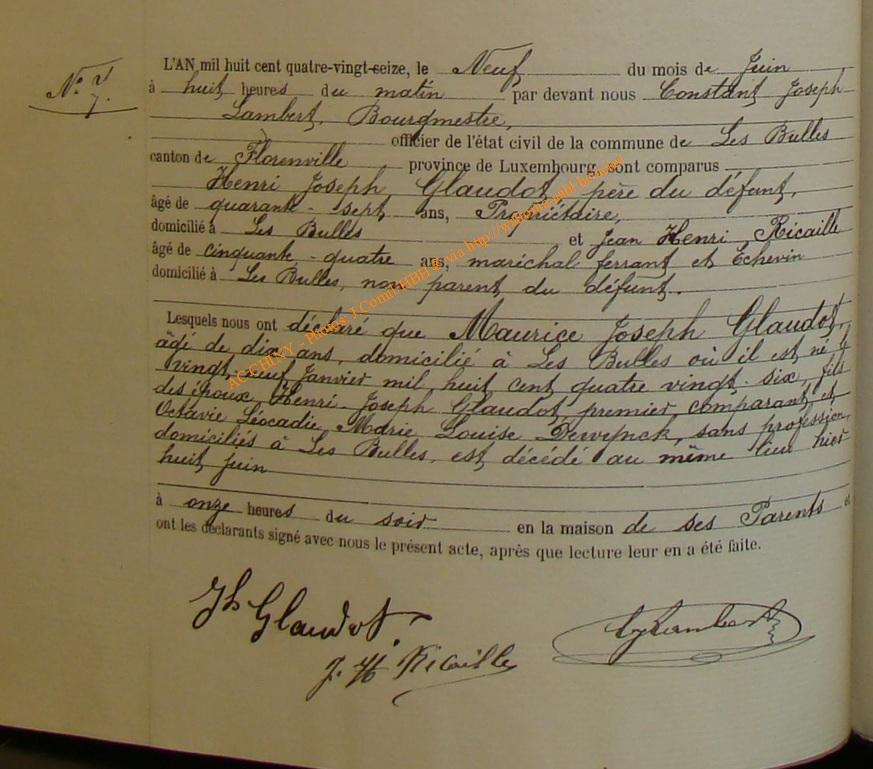 N° 7
7.
L'AN mil huit cent quatre-vingt-seize, le Neuf du mois de Juin
à huit heures du matin par devant nous Constant Joseph
Lambert, Bourgmestre,
officier de l'état civil de la commune de Les Bulles
canton de Florenville province de Luxembourg, sont comparus
Henri Joseph Glaudot, père du défunt,
âgé de quarante-sept ans, Propriétaire,
domicilié à Les Bulles et Jean Henri Ricaille
âgé de cinquante-quatre ans, maréchal ferrant et Echevin
domicilié à Les Bulles, non parent du défunt.
Lesquels nous ont déclaré que Maurice Joseph Glaudot,
âgé de dix ans, domicilié à Les Bulles où il est né le
vingt-neuf Janvier mil huit cent quatre vingt-six, fils
des époux Henri-Joseph Glaudot, premier comparant et
Octavie Léocadie Marie Louise Dewynck, sans profession,
domiciliés à Les Bulles, est décédé au même lieu hier
huit Juin
à onze heures du soir en la maison de ses Parents et
ont les déclarants signé avec nous le présent acte, après que lecture leur en a été faite.
Jh Glaudot.
J. H Ricaille
CJLambert
AC CHINY - Photos J.Comit HBH © via http://